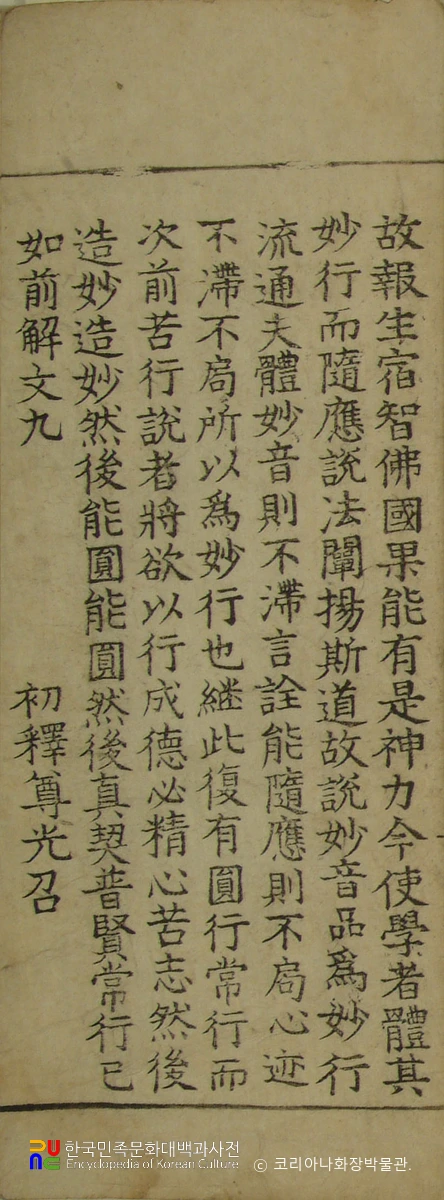 故報生宿智佛國果能有是神力今使學者體其
妙行而隨應說法闡揚斯道故說妙音品爲妙行
流通夫體妙音則不滯言詮能隨應則不局心迹
不滯不局所以爲妙行也繼此復有圓行常行而
次前苦行說者將欲以行成德必精心苦志然後
造妙造妙然後能圓能圓然後真契普賢常行已
如前解文九 初釋尊光召
한국민족문화대백과사전
Encyclopedia of Korean Culture
© 코리아나화장박물관.